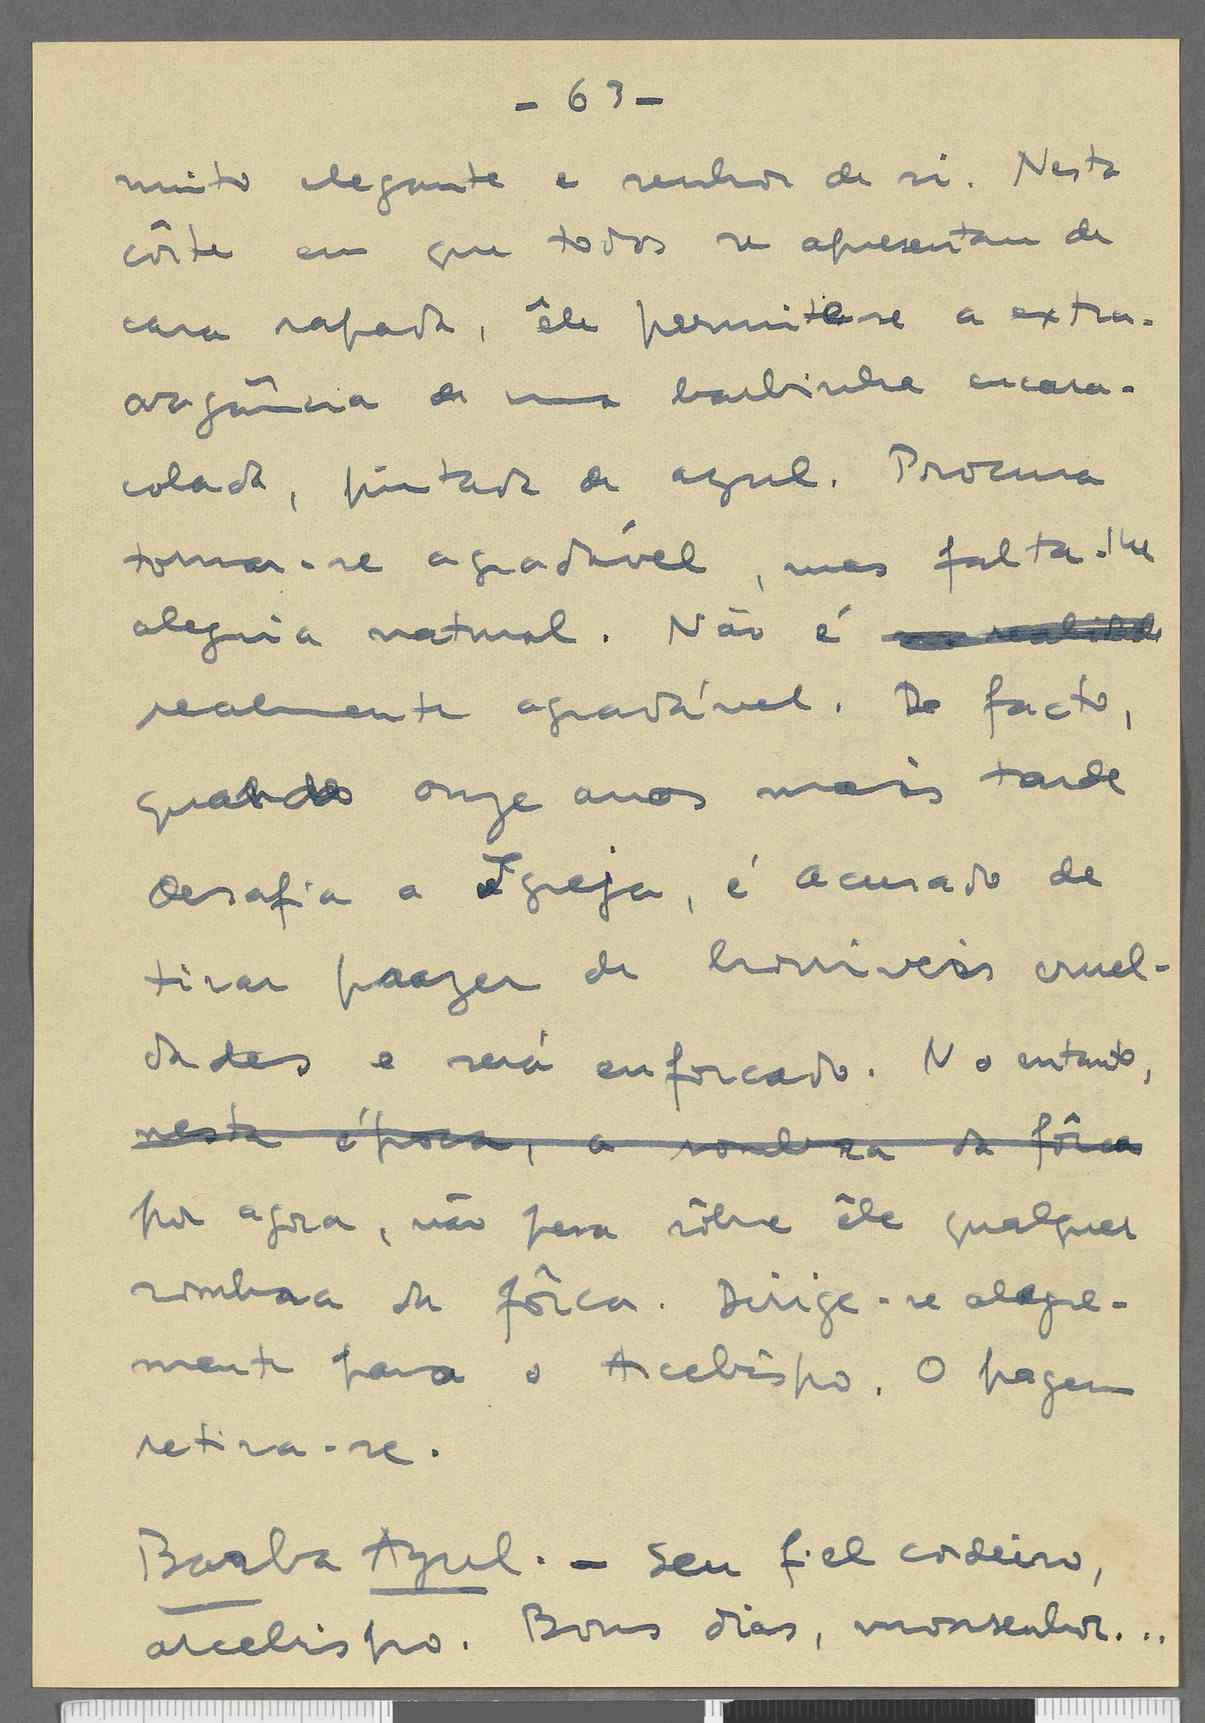 - 63 -
muito elegante e senhor de si. Nesta
côrte em que todos se apresentam de
cara rapada, êle permite-se a extra-
vagância de uma barbinha encara-
colada, pintada de azul. Procura
tornar-se agradável, mas falta-lhe
alegria natural. Não é na realidade
realmente agradável. De facto,
quando onze anos mais tarde
desafia a Igreja, é acusado de
tirar prazer de horríveis cruel-
dades e será enforcado. No entanto,
nesta época, a sombra da fôrca
por agora, não pesa sôbre êle qualquer
sombra da fôrca. Dirige-se alegre-
mente para o Arcebispo. O pagem
retira-se.
Barba Azul. - Seu fiel cordeiro,
arcebispo. Bons dias, monsenhor...